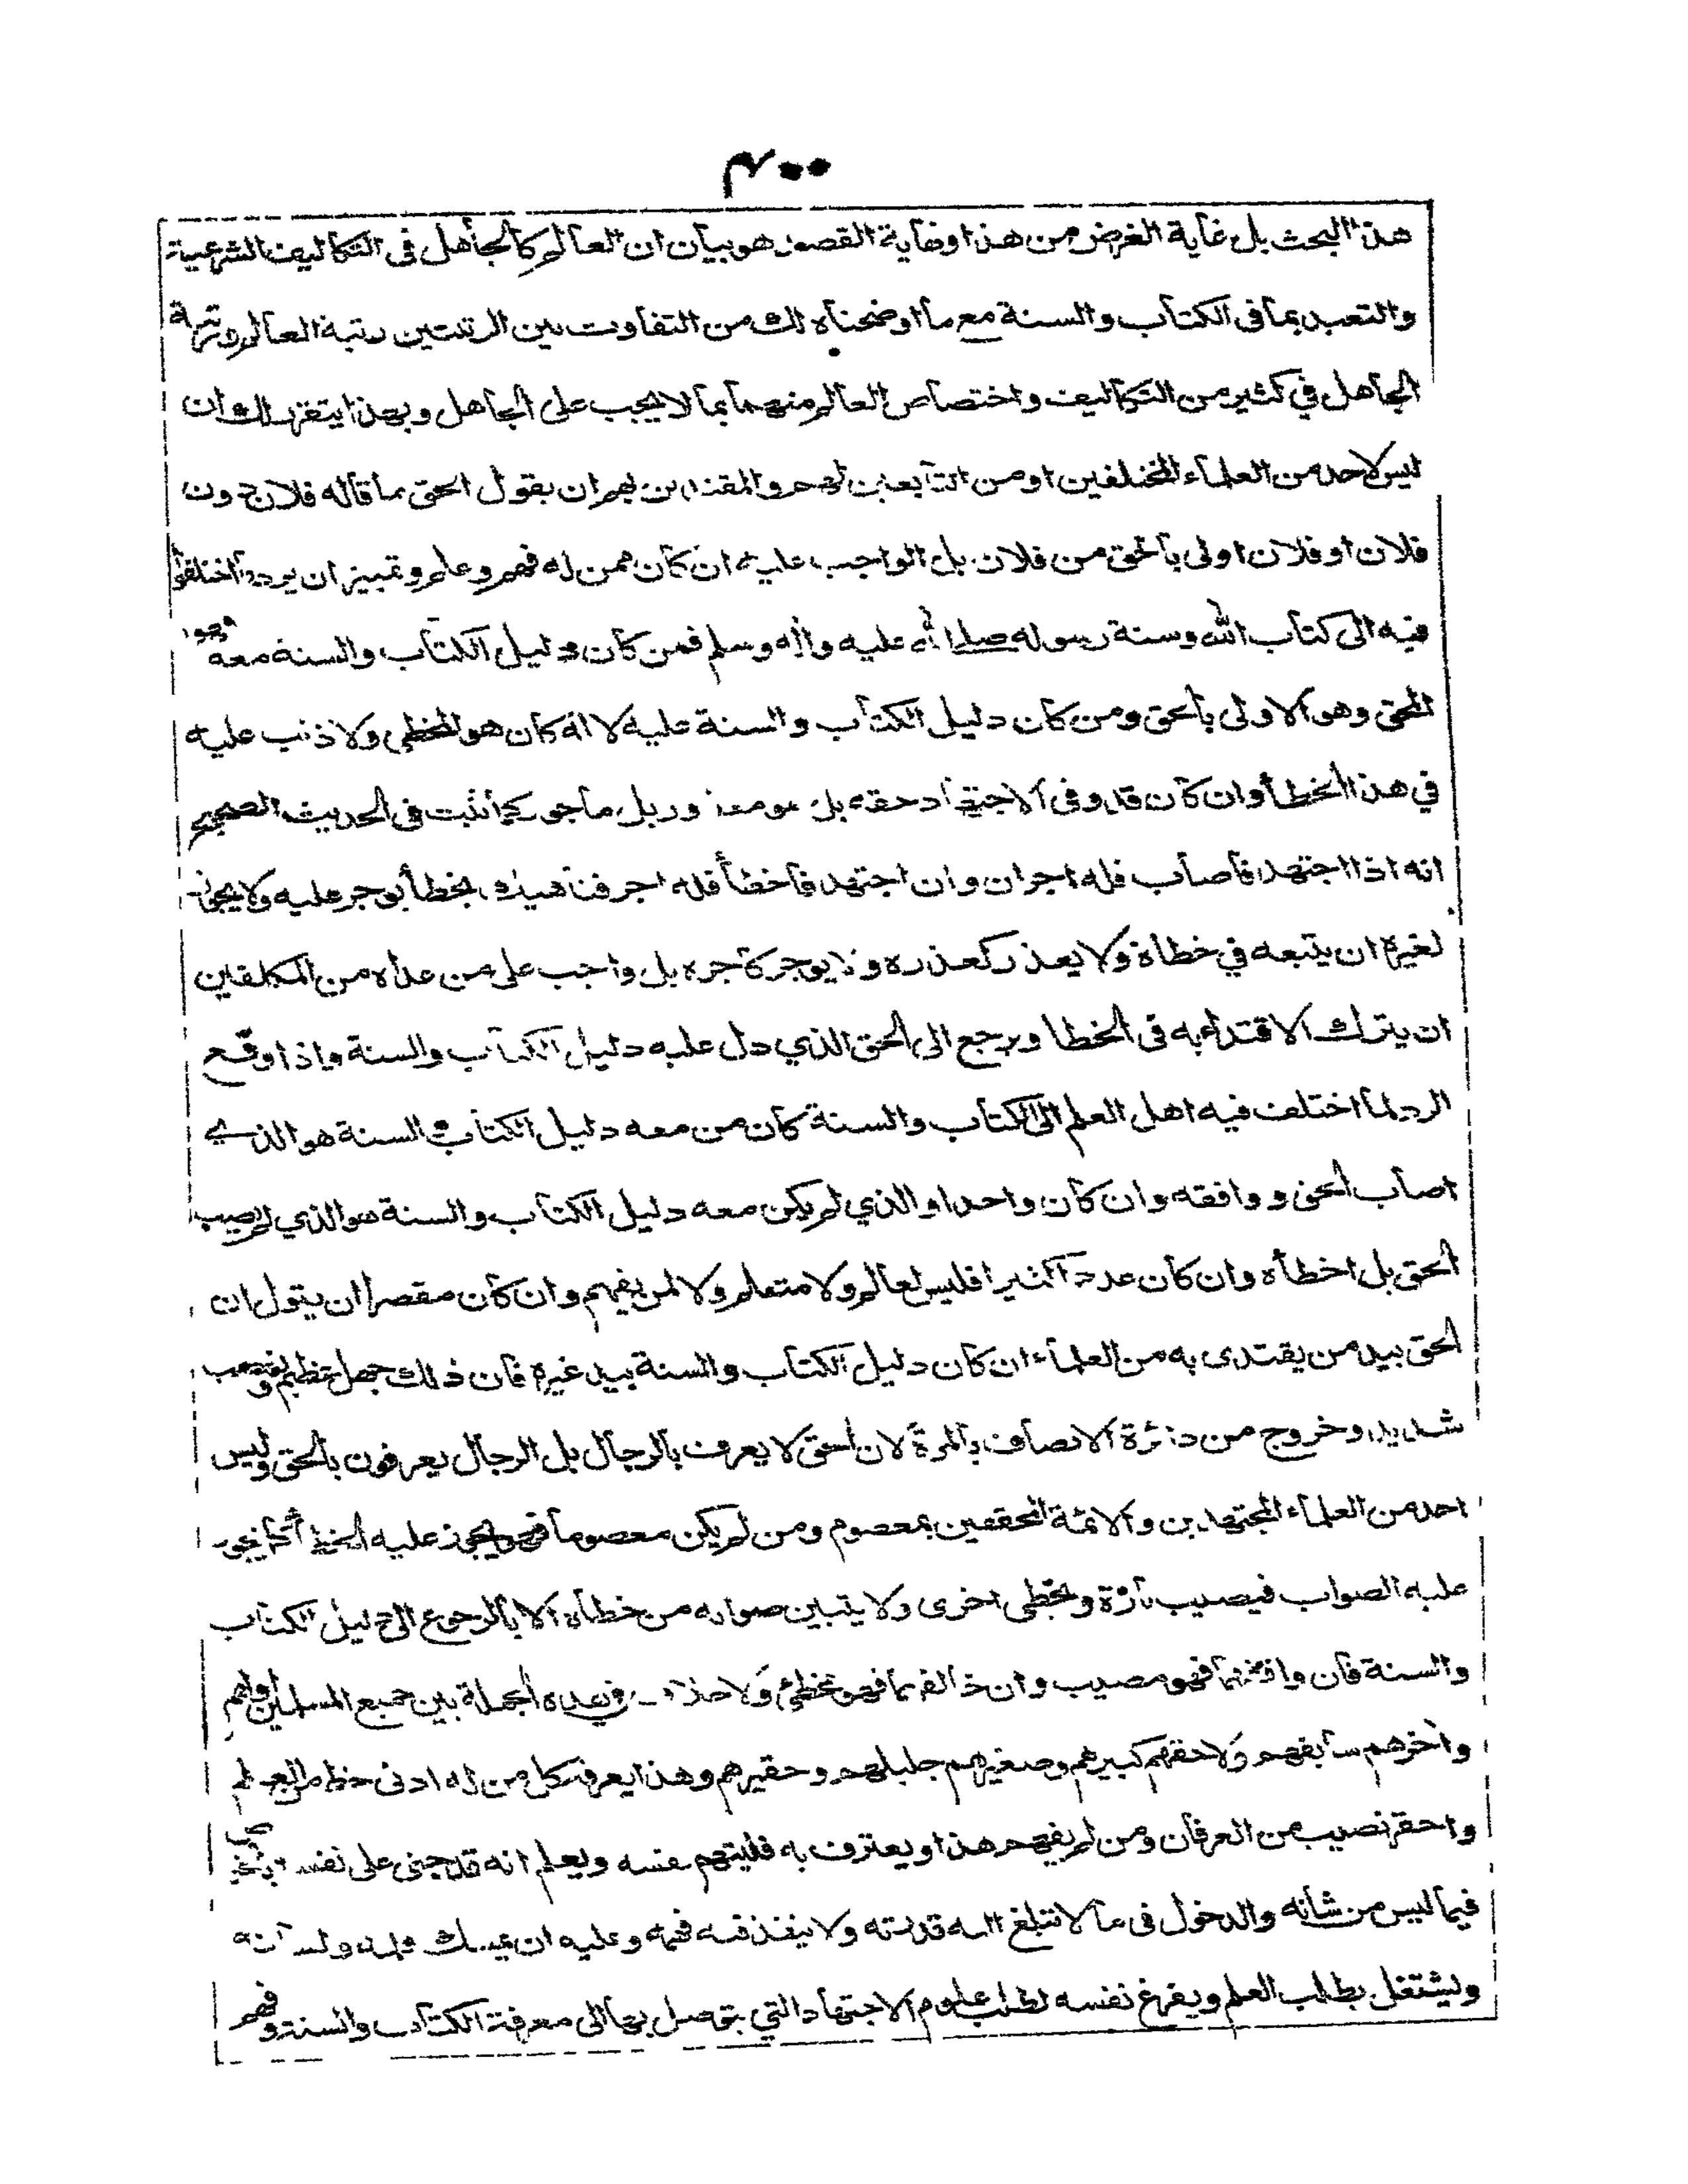 ٣٠٠
هذا البحث بل غاية الغرض من هذا ونهاية القصد هو بيان ان العالم كالجاهل في التكاليف الشرعية
والتعبد بما في الكتاب والسنة مع ما اوضحناه لك من التفاوت بين الرتبتين رتبة العالم ورتبة
الجاهل في كثير من التكاليف واختصاص العالم منهما بما لا يجب على الجاهل وبهذا يتقرر لك ان
ليس لاحد من العلماء المختلفين او من التابعين لهم والمقتدين بهم ان يقول الحق ما قاله فلان دون
فلان او فلان اولى بالحق من فلان بل الواجب عليه ان كان ممن له فهم وعلم وتمييز ان يرد ما اختلفوا
فيه الى كتاب الله وسنة رسوله صلى الله عليه واله وسلم فمن كان دليل الكتاب والسنة معه فهو
المحق وهو الاولى بالحق ومن كان دليل الكتاب والسنة عليه لا له كان هو المخطي ولا ذنب عليه
في هذا الخطأ وان كان قد وفى الاجتهاد حقه بل هو معذور بل ماجور كما ثبت في الحديث الصحيح
انه اذا اجتهد فاصاب فله اجران وان اجتهد فاخطأ فله اجر فناهيك بخطأ يوجر عليه ولا يجوز
لغيره ان يتبعه في خطاة ولا يعذر كعذره ولا يوجر كاجره بل واجب على من عداه من المكلفين
ان يترك الاقتداء به في الخطا ويرجع الى الحق الذي دل عليه دليل الكتاب والسنة واذا وقع
الرد لما اختلف فيه اهل العلم الى الكتاب والسنة كان من معه دليل الكتاب والسنة هو الذي
اصاب الحق ووافقه وان كان واحدا والذي لم يكن معه دليل الكتاب والسنة هو الذي لم يصب
الحق بل اخطأه وان كان عددا كثيرا فليس لعالم ولا متعلم ولا لمن يفهم وان كان مقصرا ان يقول ان
الحق بيد من يقتدى به من العلماء ان كان دليل الكتاب والسنة بيد غيره فان ذلك جهل عظيم وتعصب
شديد وخروج من دائرة الانصاف بالمرة لان الحق لا يعرف بالرجال بل الرجال يعرفون بالحق وليس
احد من العلماء المجتهدين والائمة المحققين بمعصوم ومن لم يكن معصوما فهو يجوز عليه الخطأ كما يجوز
عليه الصواب فيصيب تارة ويخطي اخرى ولا يتبين صوابه من خطاه الا بالرجوع الى دليل الكتاب
والسنة فان وافقهما فهو مصيب وان خالفهما فهو مخطئ ولا خلاف في هذه الجملة بين جميع المسلمين اولهم
واخرهم سابقهم ولاحقهم كبيرهم وصغيرهم جليلهم وحقيرهم وهذا يعرفه كل من له ادنى حظ من العلم
واحقر نصيب من العرفان ومن لم يفهم هذا ويعترف به فليتهم نفسه وليعلم انه قد جنى على نفسه
فيما ليس من شانه والدخول في ما لا تبلغ اليه قدرته ولا ينفذ فيه فهمه وعليه ان يمسك قلمه ولسانه
وليشتغل بطلب العلم ويفرغ نفسه لطلب علوم الاجتهاد التي يتوصل بها الى معرفة الكتاب والسنة وفهم